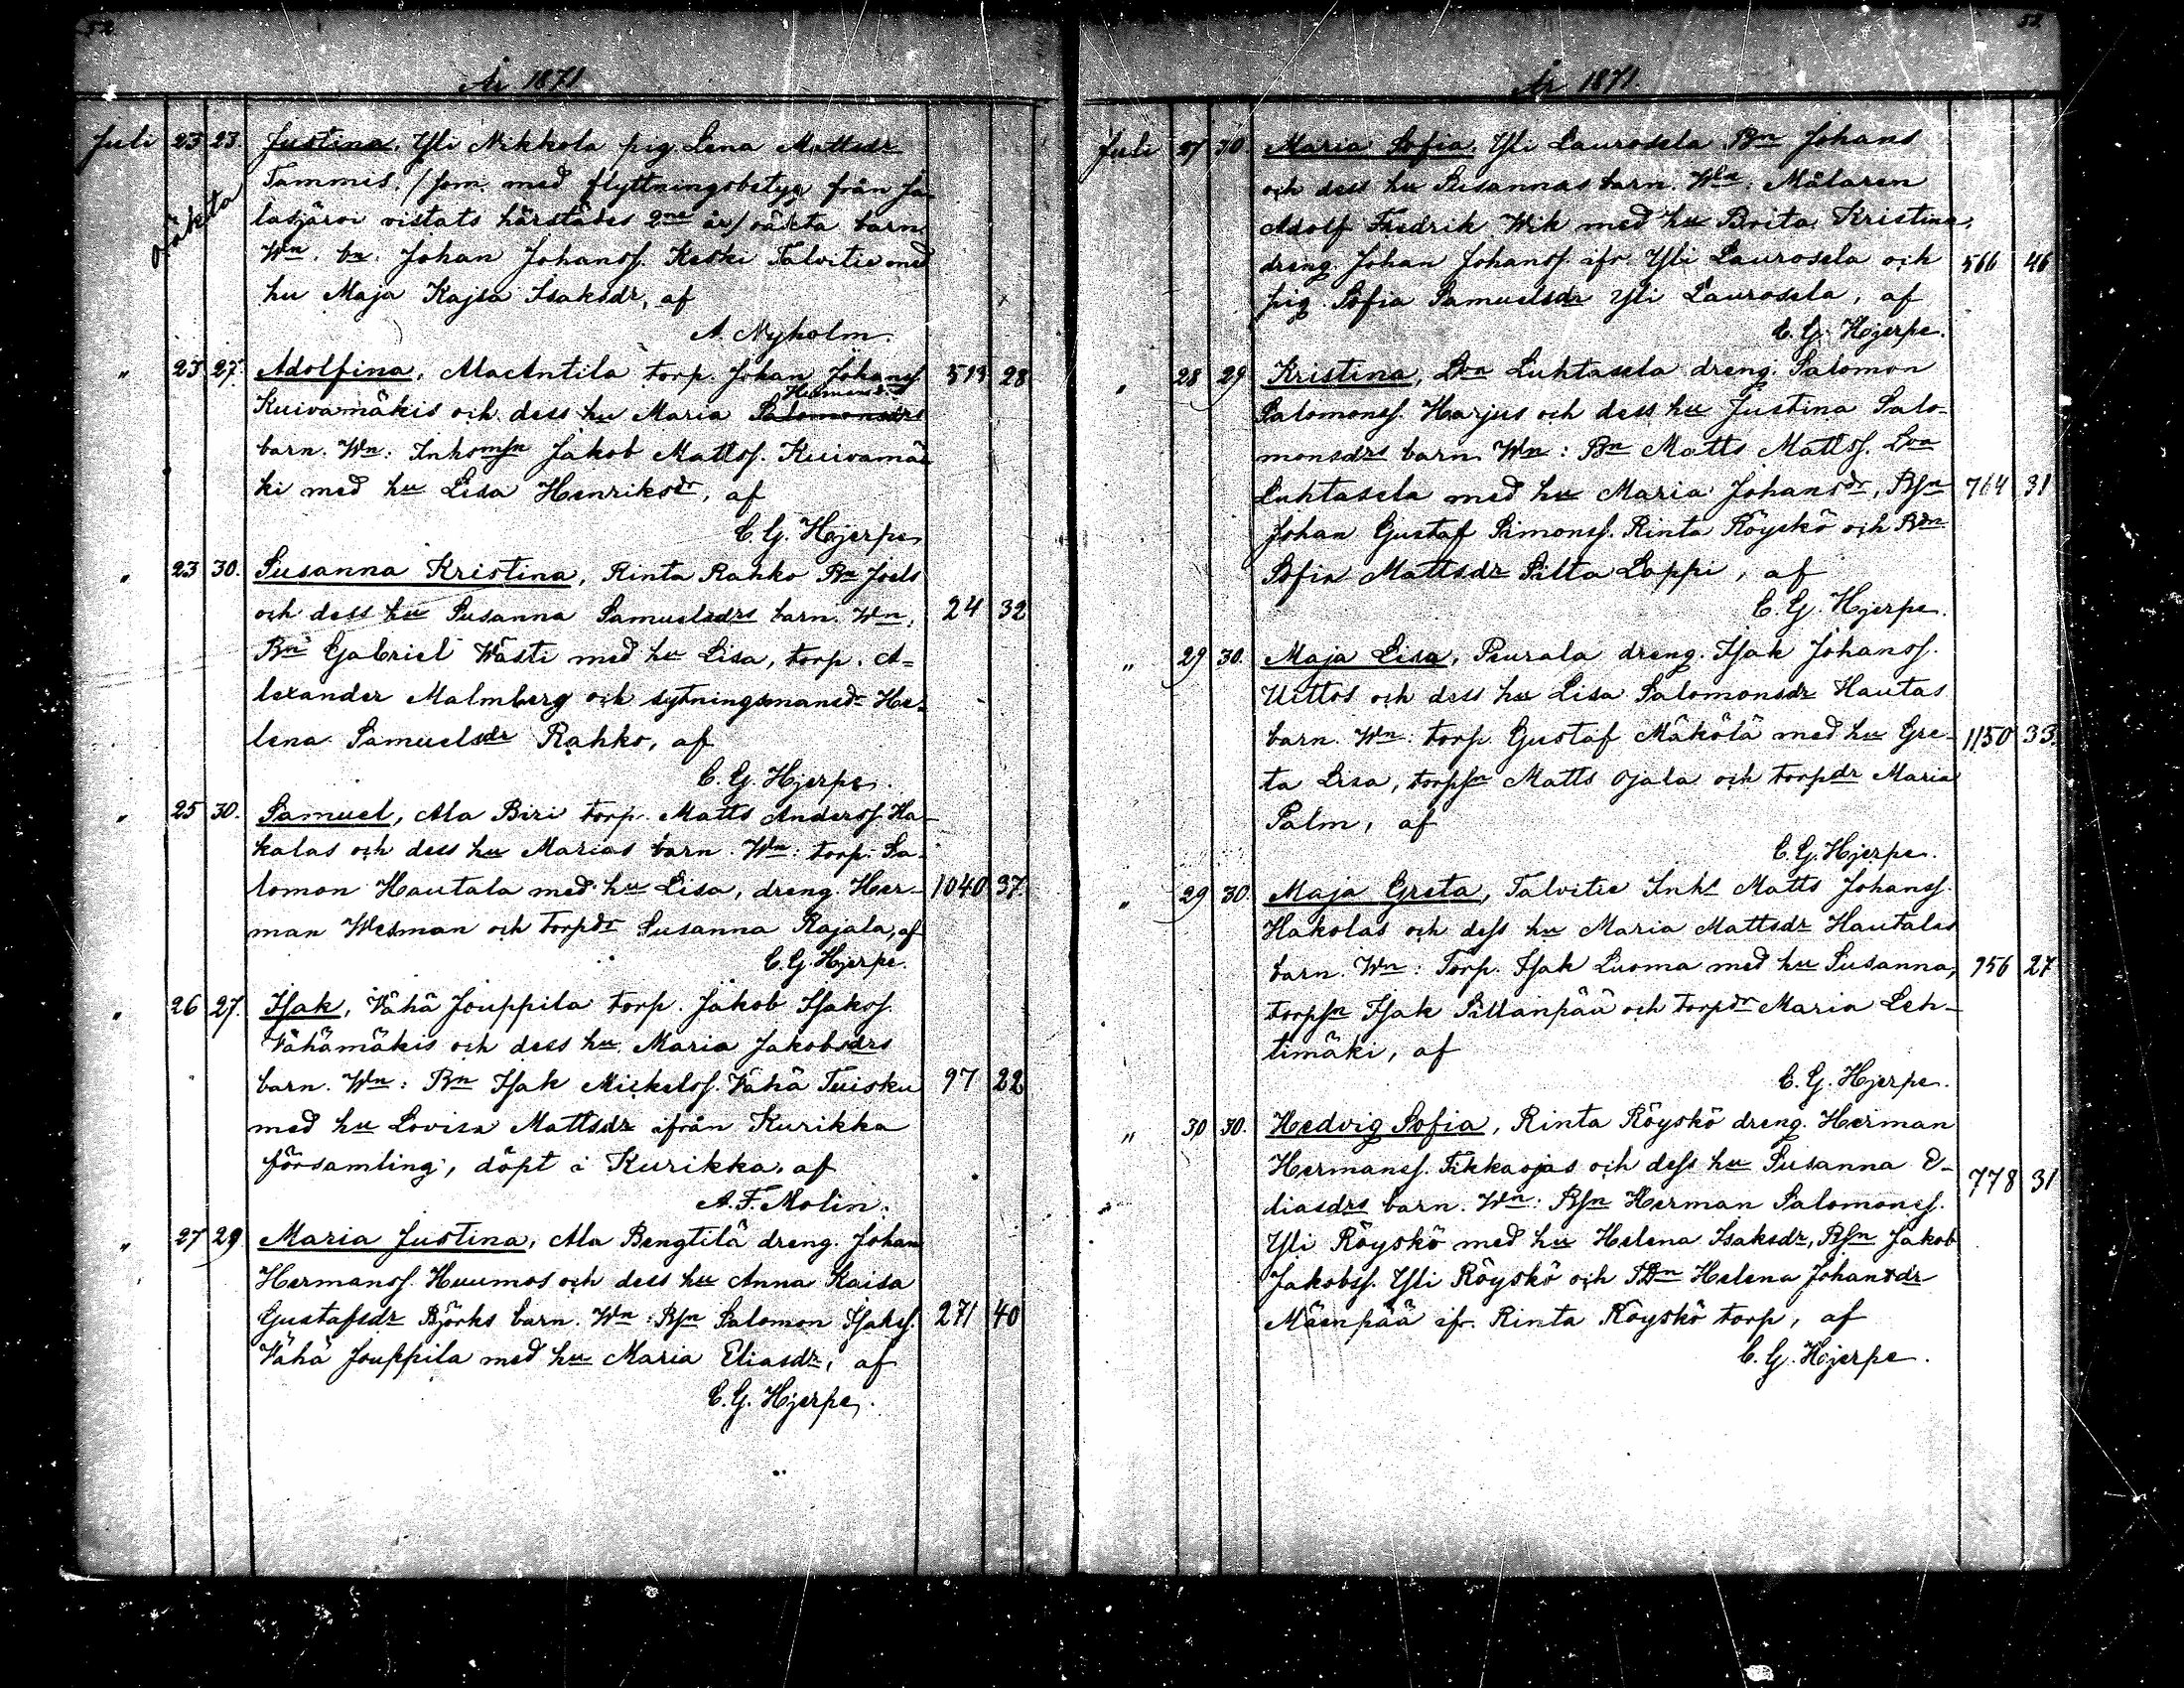 52
År 1871
Juli 23 23. Justina, Yli Nikkola pig. Lena Mattsdr
oäkta
Tammis, /som med flyttningsbetyg från Ja-
lasjärvi vistats härstädes 2ne år/ oäkta barn.
Wn. bn. Johan Johanss. Keski Talvitie med
hu Maja Kajsa Isaksdr, af
A. Nyholm.
" 23 27. Adolfina, Ala Antila torp. Johan Johanss. 28
Kuivamäkis och dess hu Maria Salomonsdrs
barn. Wn: Inhomsn Jakob Mattss. Kuivamä-
ki med hu Lisa Henriksdr, af
C. G. Hjerpe
" 23 30. Susanna Kristina, Rinta Rahko Bn Joels
och dess hu Susanna Samuelsdrs barn. Wn. 24 32
Bn Gabriel Wästi med hu Lisa, torp. A-
lexander Malmberg och sytningsmansdr He-
lena Samuelsdr Rahko, af
C. G. Hjerpe.
" 25 30. Samuel, Ala Biri torp. Matts Anderss. Ha-
kalas och dess hu Marias barn. Wn: torp. Sa-
lomon Hautala med hu Lisa, dreng. Her- 1040 37.
man Wesman och torpdr Susanna Rajala, af
C. G. Hjerpe.
" 26 27. Isak, Vähä Jouppila torp. Jakob Isakss.
Vähämäkis och dess hu Maria Jakobsdrs
barn. Wn: Bn Isak Mickelss. Vähä Tuisku 97 22
med hu Lovisa Mattsdr ifrån Kurikka
församling, döpt i Kurikka, af
A. F. Molin.
" 27 29 Maria Justina, Ala Bengtilä dreng. Johan
Hermanss. Huumos och dess hu Anna Kaisa
Gustafsdr Björks barn. Wn: Bsn Salomon Isakss. 271 40
Vähä Jouppila med hu Maria Eliasdr, af
C. G. Hjerpe.
År 1871.
Juli 27 30. Maria Sofia, Yli Laurosela Bn Johans
och dess hu Susannas barn. Wn: Målaren
Adolf Fredrik Wik med hu Brita Kristina,
dreng. Johan Johanss. ifr. Yli Laurosela och 566 46
pig. Sofia Samuelsdr Yli Laurosela, af
C. G. Hjerpe.
" 28 29 Kristina, Lva Luhtasela dreng. Salomon
Salomonss. Harjus och dess hu Justina Salo-
monsdrs barn. Wn: Bn Matts Mattss. Lva
Luhtasela med hu Maria Johansdr, Bsn 764 31
Johan Gustaf Simonss. Rinta Röyskö och Bdn
Sofia Mattsdr Silta Loppi, af
C. G. Hjerpe.
" 29 30. Maja Lisa, Peurala dreng. Isak Johanss.
Uittos och dess hu Lisa Salomonsdr Hautas
barn. Wn: torp. Gustaf Mäkölä med hu Gre- 1150 33.
ta Lisa, torpsn Matts Ojala och torpdr Maria
Palm, af
C. G. Hjerpe.
" 29 30. Maja Greta, Talvitie Inhs Matts Johanss.
Hakolas och dess hu Maria Mattsdr Hautalas
barn. Wn: Torp. Isak Luoma med hu Susanna, 27
torpsn Isak Sillanpää och torpdr Maria Leh-
timäki, af
C. G. Hjerpe.
" 30 30. Hedvig Sofia, Rinta Röyskö dreng. Herman
Hermanss. Tikkaojas och dess hu Susanna E-
liasdrs barn. Wn: Bsn Herman Salomonss. 778 31
Yli Röyskö med hu Helena Isaksdr, Bsn Jakob
Jakobss. Yli Röyskö och TDn Helena Johansdr
Mäenpää ifr. Rinta Röyskö torp, af
C. G. Hjerpe.